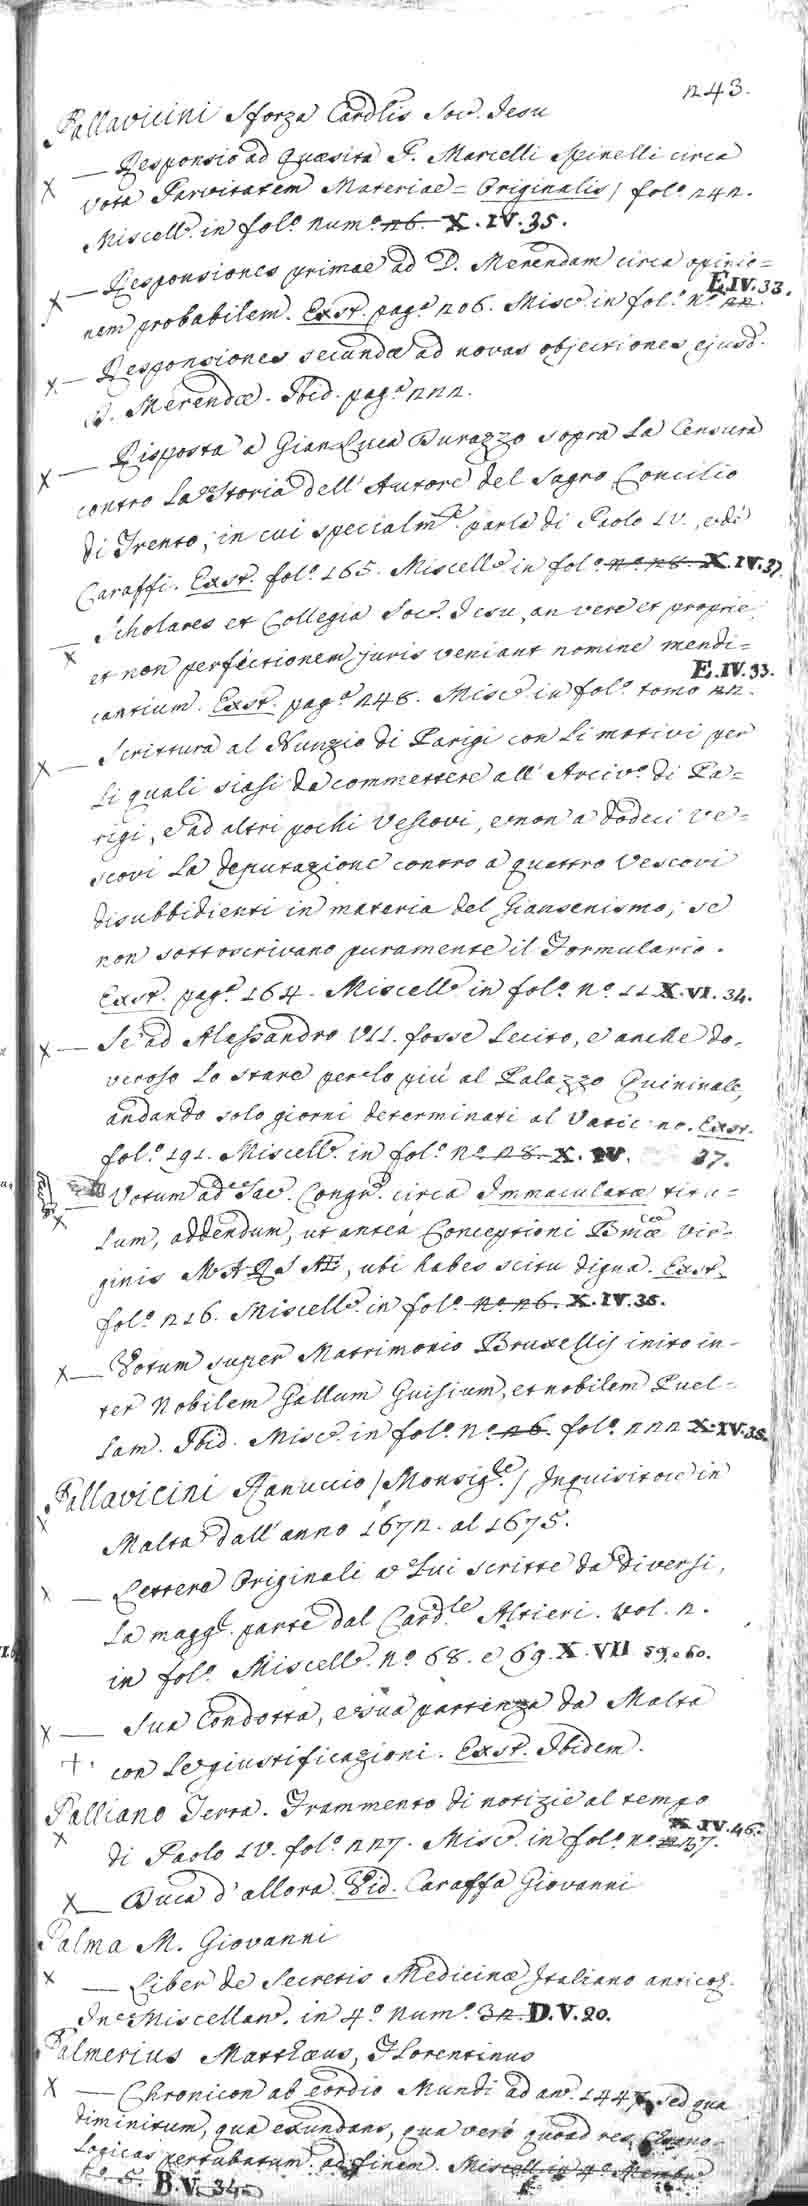 243.
Pallavicini Sforza Cardlis Soc. Jesu
X — Responsio ad Quæsita P. Marcelli Spinelli circa
vota Parvitatem Materiae = Originalis / fol.º 242.
Miscell. in fol.º num.º 26. X. IV. 35.
X — Responsiones primae ad D. Merendam circa opinio=
nem probabilem. Exst. pag.ª 206. Misc. in fol.º nº 22. E.IV.33.
X — Responsiones secundæ ad novas objectiones ejusd.
D. Merendæ. Ibid. pag.ª 222.
X — Risposta a Gian Luca Durazzo sopra la Censura
contro la Storia dell' Autore del Sagro Concilio
di Trento, in cui specialm.te parla di Paolo IV., e de'
Caraffi. Exst. fol.º 165. Miscell. in fol.º nº 28. X. IV. 37.
X — Scholares et Collegia Soc. Jesu, an vere et proprie,
et non perfectionem juris veniant nomine mendi=
cantium. Exst. pag.ª 248. Misc. in fol.º tomo 22. E.IV.33.
X — Scrittura al Nunzio di Parigi con li motivi per
li quali siasi da commettere all' Arciv.º di Pa=
rigi, e ad altri pochi Vescovi, e non a dodeci Ve=
scovi la deputazione contro a quattro Vescovi
disubbidienti in materia del Giansenismo, se
non sottoscrivano puramente il Formulario.
Exst. pag.ª 164. Miscell. in fol.º nº 11 X. VI. 34.
X — Se ad Alessandro VII. fosse lecito, e anche do-
veroso lo stare per lo più al Palazzo Quirinale,
andando solo giorni determinati al Vaticano. Exst.
fol.º 191. Miscell. in fol.º nº 28. X. IV. 37.
X — Votum ad Sac. Congr. circa Immaculatæ titu=
lum, addendum, ut antea Conceptioni Bmæ Vir-
ginis MARIAE, ubi habes scitu digna. Exst.
fol.º 216. Miscell. in fol.º nº 26. X. IV. 35.
X — Votum super Matrimonio Bruxellis inito in-
ter Nobilem Gallum Guisium, et nobilem Puel-
lam. Ibid. Misc. in fol.º nº 26. fol.º 222 X. IV. 35.
Pallavicini Ranuccio (Monsig.re) Inquisitore in
X Malta dall' anno 1672. al 1675.
X — Lettere Originali a Lui scritte da diversi,
la magg. parte dal Card.le Altieri. Vol. 2.
in fol.º Miscell. nº 68. e 69. X. VII 59. e 60.
X — Sua Condotta, e sua partenza da Malta
+ . con le giustificazioni. Exst. Ibidem.
Palliano Terra. Frammento di notizie al tempo
X di Paolo IV. fol.º 227. Misc. in fol.º nº 37. X. IV. 46.
X — Duca d'allora. Vid. Caraffa Giovanni
Palma M. Giovanni
X — Liber de Secretis Medicinæ Italiano antico.
In Miscellan. in 4.º Num.º 32. D. V. 20.
Palmerius Matthæus, Florentinus
X — Chronicon ab exordio Mundi ad an. 1447, sed qua
diminitum, qua exundans, qua verò quoad res Chrono-
logicas perturbatum ad finem. Miscell. in 4.º Membr.
nº 5. B. V. 34.